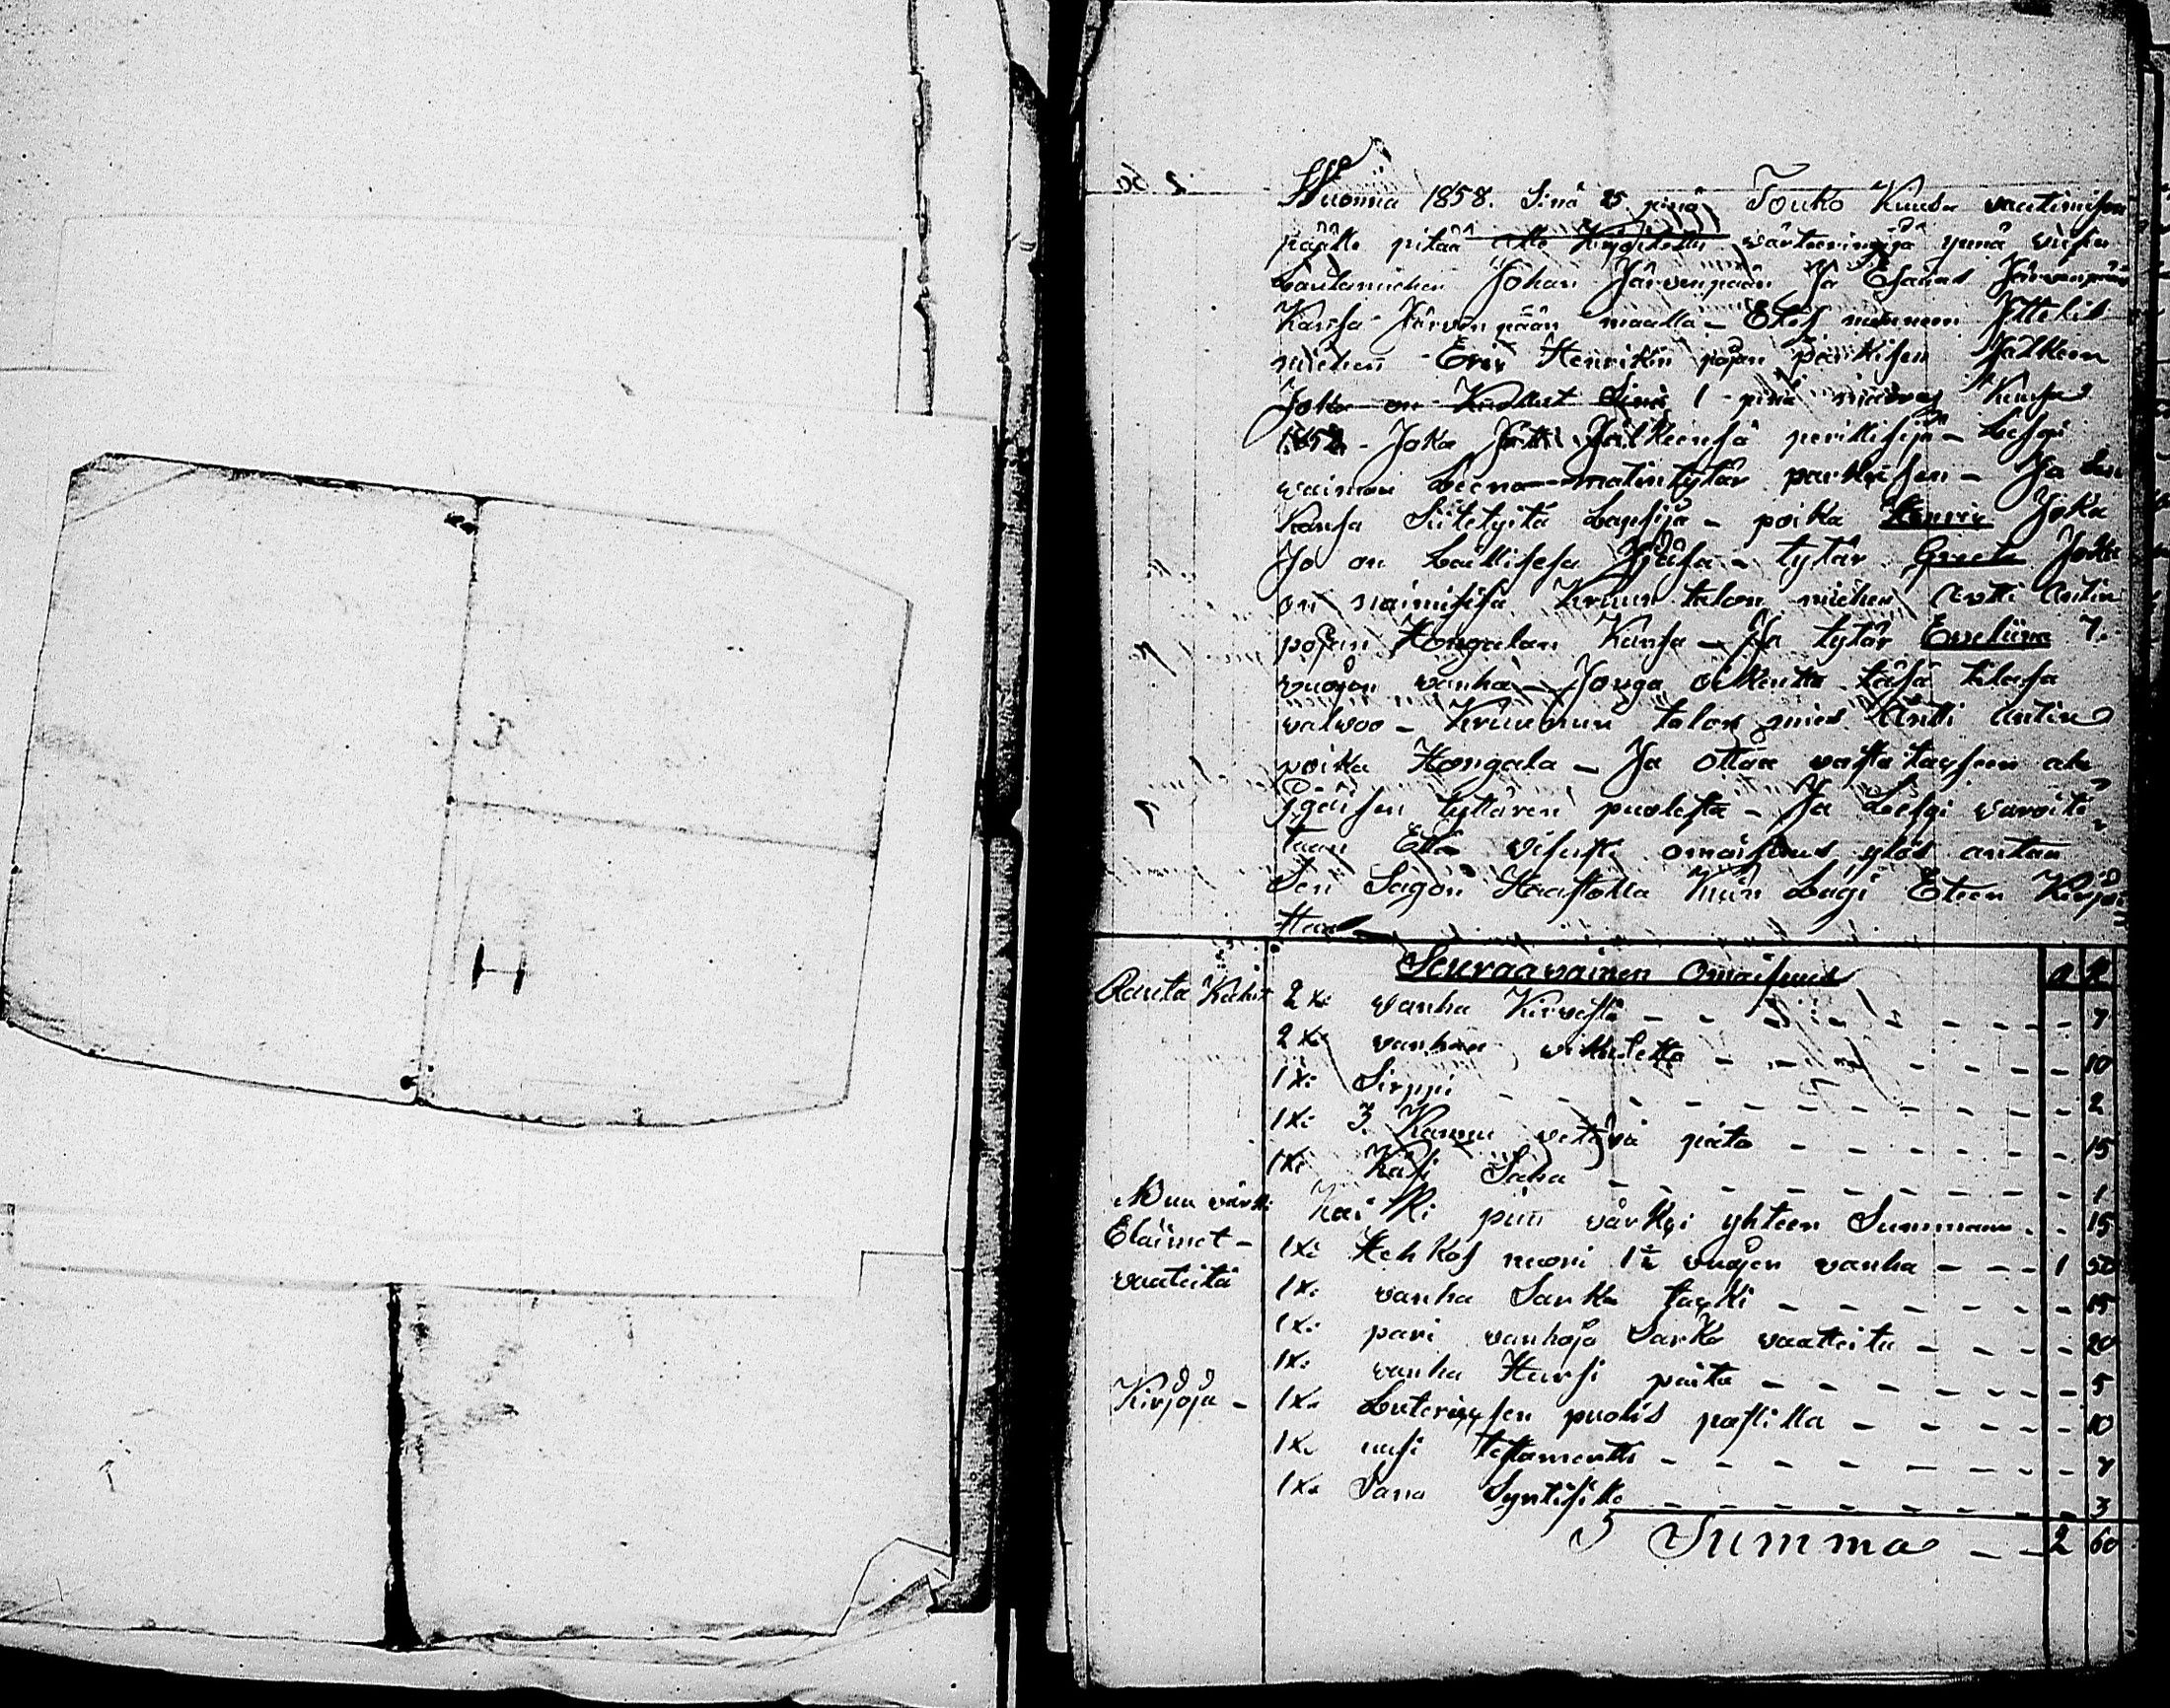 H
Wuonna 1858. Sinä 25 pinä Touko Kuuda vaatimisen
päälle pitää alle Kirjoitettu wärteerinkijä ynnä viisin
Lautamiehen Johan Järvenpään Ja Esaias Järvenpään
Kansa Järvenpään maalla - Edes mennen Ittelis
miehen Eric Henrikin pojan parkisen Jälkeen
Joka on Kuollut Sinä 1 pinä Kuusa
1858 - Joka Jätti Jälkeensä perillisijä - Lesgi
waimon Leena matintytär parkisen - Ja
Kansa Siitetyitä Lapsija - poika Henric Joka
Jo on Laillisesa Ijäsä - tytär Greeta Joka
on naimisisa Kruun talon miehen Antti Antin
pojan Hongalan Kansa - Ja tytär Eveliina 7.
vuojen wanha - Jonga oikeutta täsä tilasa
walwoo - Kruunun talon mies Antti Antin
poika Hongala - Ja ottaa vasta tayseen ala
Ijäisen tyttären puolesta - Ja Lesgi varoite
taan Että Visusti omaisuus ylös antaa
Sen Sagon Haastolla Kuin Lagi Eteen Kirjoi
ttaa
Seuraavainen Omaisuus R K
Rauta Kalut 2 xi Wanha Kirvestä - - 7
2 xi vanhaa wikatetta - - 10
1 xi Sirppi - - 2
1 xi 3. Kannu vetävä pata - - 15
1 xi Käsi Saha - - 1
Muu värkki Kaikki puu värkki yhteen Summaan - - 15
Eläimet - 1 xi Hehkof nuori 1½ vuojen vanha - - - 1 50
vaateita 1 xi vanha Sarka takki - - 15
1 xi pari vanhoja Sarka vaatteita - - 20
1 xi vanha Hursi paita - - 5
Kirjoja - 1 xi Luteriuxsen puolis postilla - - 10
1 xi uusi testamentti - - 7
1 xi Sana Syntisille - - 3
Summa - - 2 60